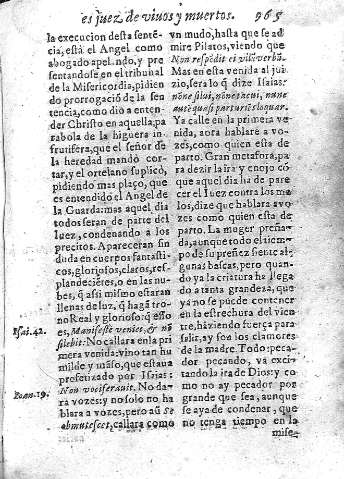 es juez de viuos y muertos. 965
la execucion desta sentē-
cia, està el Angel como
abogado apelando, y pre
sentandose en el tribunal
de la Misericordia; pidien
do prorrogació de la sen
tencia, como dio a enten-
der Christo en aquella pa
rabola de la higuera in-
frutifera, que el señor de
la heredad mandò cor-
tar, y el ortelano suplicò,
pidiendo mas plaço, que
es entendido el Angel de
la Guarda: mas aquel dia
todos seran de parte del
Iuez, condenando a los
precitos. Apareceran sin
duda en cuerpos fantasti-
cos, gloriosos, claros, res-
plandecientes, o en las nu-
bes, q̄ assi mismo estaran
llenas de luz, q̄ hagā tro-
no Real y glorioso: q̄ esso
Psai. 42.
es, Manifestè veniet, & nō
silebit: No callara en la pri
mera venida: vino tan hu
milde y māso, que estaua
profetizado por Isaias:
Ioan. 19.
Non vociferauit. No da-
rà vozes: y no solo no ha
blara a vozes, pero aū se
obmutescet, callara como
vn mudo, hasta que se ad
mire Pilatos, viendo que
Non respōdit ei vllū verbū.
Mas en esta venida al jui-
zio, sera lo q̄ dize Isaias:
none silui, none tacui, nunc
autē quasi parturiēs loquar.
Ya calle en la primera ve
nida, aora hablare a vo-
zes, como quien esta de
parto. Gran metafora, pa
ra dezir la ira y enojo cō
que aquel dia ha de pare
cer el Iuez contra los ma
los, dize que hablara a vo
zes como quien esta de
parto. La muger preña-
da, aunque todo el tiem-
po de su preñez siente al-
gunas bascas, pero quan-
do ya la criatura ha llega
do a tanta grandeza, que
ya no se puede contener
en la estrechura del vien-
te, haziendo fuerça para
salir, ay son los clamores
de la madre. Todo peca-
dor pecando, va exci-
tando la ira de Dios: y co
mo no ay pecador por
grande que sea, aunque
se aya de condenar, que
no tenga tiempo en la
mise-